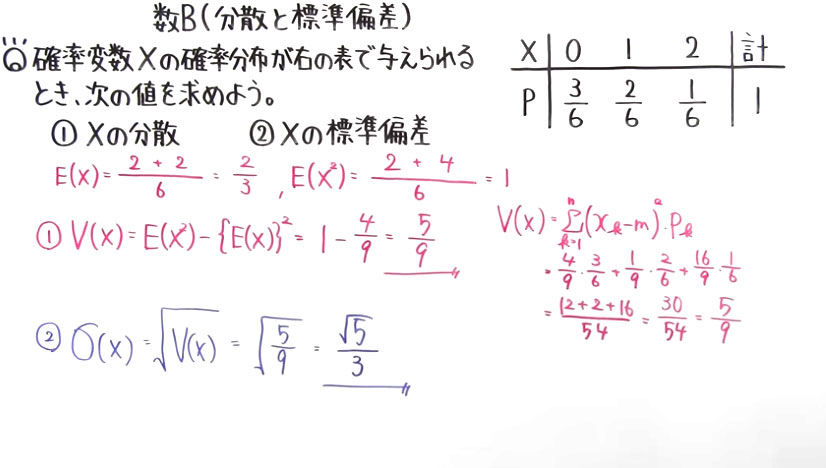 数B(分散と標準偏差)
Q 確率変数Xの確率分布が右の表で与えられる
とき、次の値を求めよう。
① Xの分散 ② Xの標準偏差
X 0 1 2 計
P 3/6 2/6 1/6 1
E(X)= (2+2)/6 = 2/3 , E(X²)= (2+4)/6 = 1
① V(X)= E(X²)-{E(X)}² = 1 - 4/9 = 5/9
V(X)= Σ_{k=1}^{n} (x_k-m)²·P_k
= 4/9·3/6 + 1/9·2/6 + 16/9·1/6
= (12+2+16)/54 = 30/54 = 5/9
② σ(X)= √V(X) = √(5/9) = √5/3